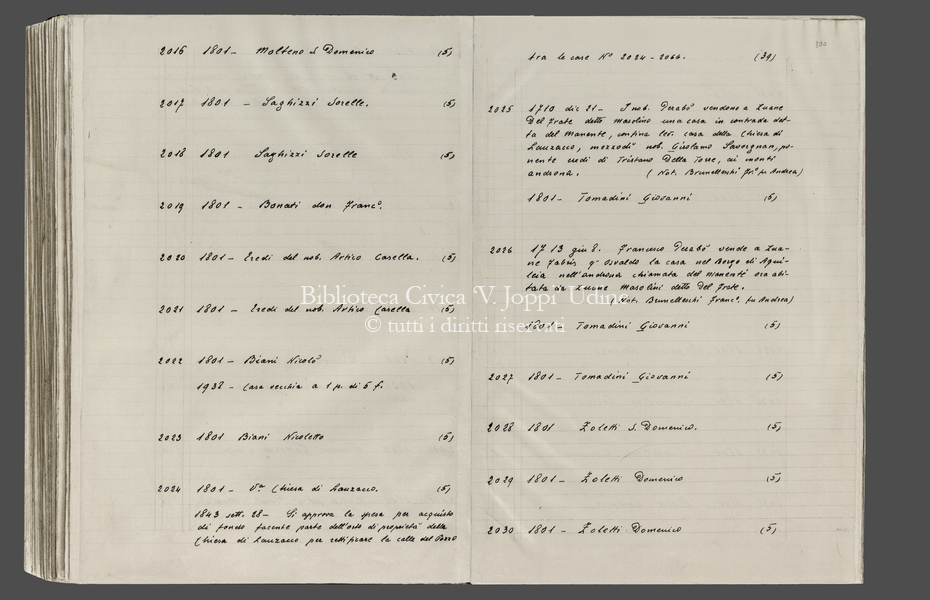 2016 1801 - Molteno S. Domenico (5)
2017 1801 - Saghizzi Sorelle. (5)
2018 1801 Saghizzi Sorelle (5)
2019 1801 - Bonati don Franc.º
2020 1801 - Eredi del nob. Artico Casella. (5)
2021 1801 - Eredi del nob. Artico Casella (5)
2022 1801 - Biani Nicolò (5)
1938 - Casa vecchia a 1 p. di 5 f.
2023 1801 Biani Nicoletto (5)
2024 1801 - V.ª Chiesa di Lauzacco. (5)
1843 sett. 28 - Si approva la spesa per acquisto
di fondo facente parte dell'orto di proprietà della
Chiesa di Lauzacco per rettificare la calle del Pozzo
300
tra le case Nº 2024 - 2066. (39)
2025 1710 dic 21 - I nob. Perabò vendono a Zuane
Del Frate detto Masolino una casa in contrada det-
ta del Manente, confina lev. casa della Chiesa di
Lauzacco, mezzodì nob. Girolamo Savorgnan, po-
nente eredi di Tristano Della Torre, ai monti
androna. (Not. Brunelleschi Fr.º fu Andrea)
1801 - Tomadini Giovanni (5)
2026 1713 giu 8. Francesco Perabò vende a Zua-
ne Fabris q.m Osvaldo la casa nel Borgo di Aqui-
leia nell'androna chiamata del Manente ora abi-
tata da Zuane Masolini detto Del Frate.
(Not. Brunelleschi Franc.º fu Andrea)
1801 - Tomadini Giovanni (5)
2027 1801 - Tomadini Giovanni (5)
2028 1801 Zoletti S. Domenico. (5)
2029 1801 - Zoletti Domenico (5)
2030 1801 - Zoletti Domenico (5)
Biblioteca Civica "V. Joppi" Udine
© tutti i diritti riservati